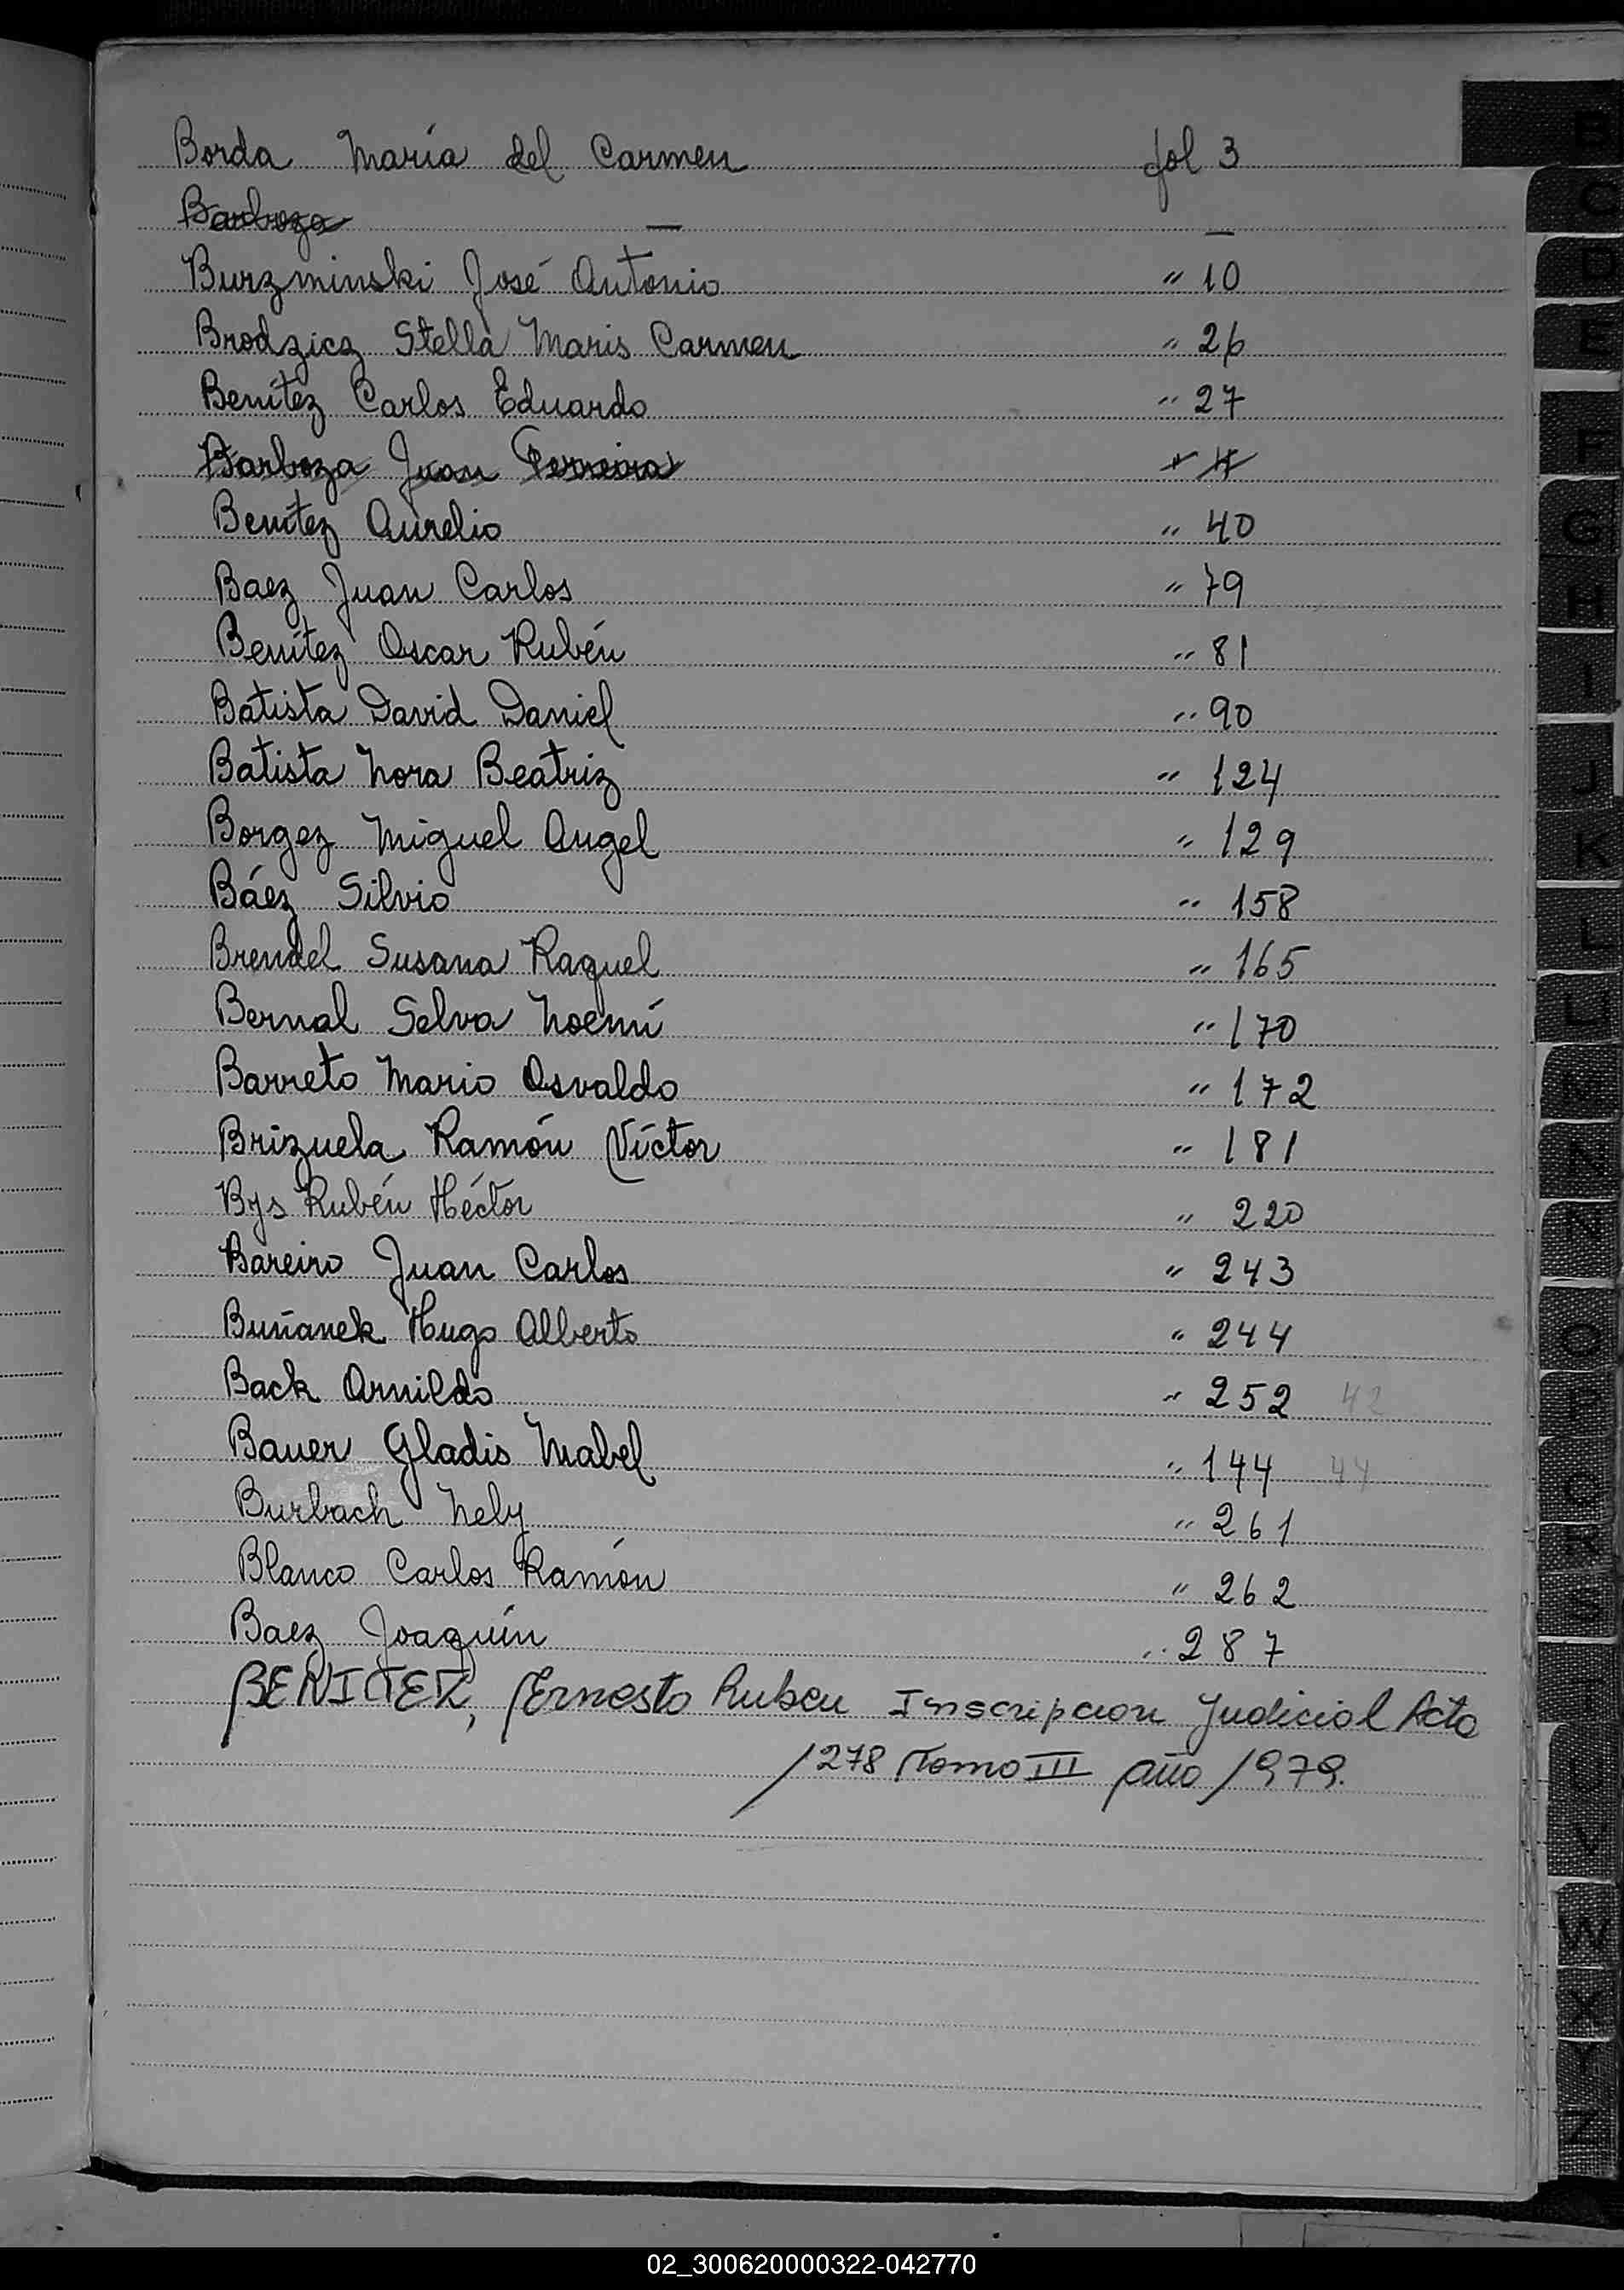 Borda María del Carmen fol 3
Barboza — —
Burzminski José Antonio " 10
Brodzicz Stella Maris Carmen " 26
Benítez Carlos Eduardo " 27
Barboza Juan Ferreira "
Benítez Aurelio " 40
Baez Juan Carlos " 79
Benítez Oscar Rubén " 81
Batista David Daniel " 90
Batista Nora Beatriz " 124
Borgez Miguel Angel " 129
Báez Silvio " 158
Brendel Susana Raquel " 165
Bernal Selva Noemí " 170
Barreto Mario Osvaldo " 172
Brizuela Ramón Víctor " 181
Bys Rubén Héctor " 220
Bareiro Juan Carlos " 243
Buñanek Hugo Alberto " 244
Back Arnildo " 252 42
Bauer Gladis Mabel " 144 44
Burbach Nely " 261
Blanco Carlos Ramón " 262
Baez Joaquín " 287
BENITEZ, Ernesto Ruben Inscripcion Judicial Acta
1278 Tomo III año 1979.
B
C
D
E
F
G
H
I
J
K
L
LL
M
N
Ñ
O
P
Q
R
S
T
U
V
W
X
Y
Z
02_300620000322-042770